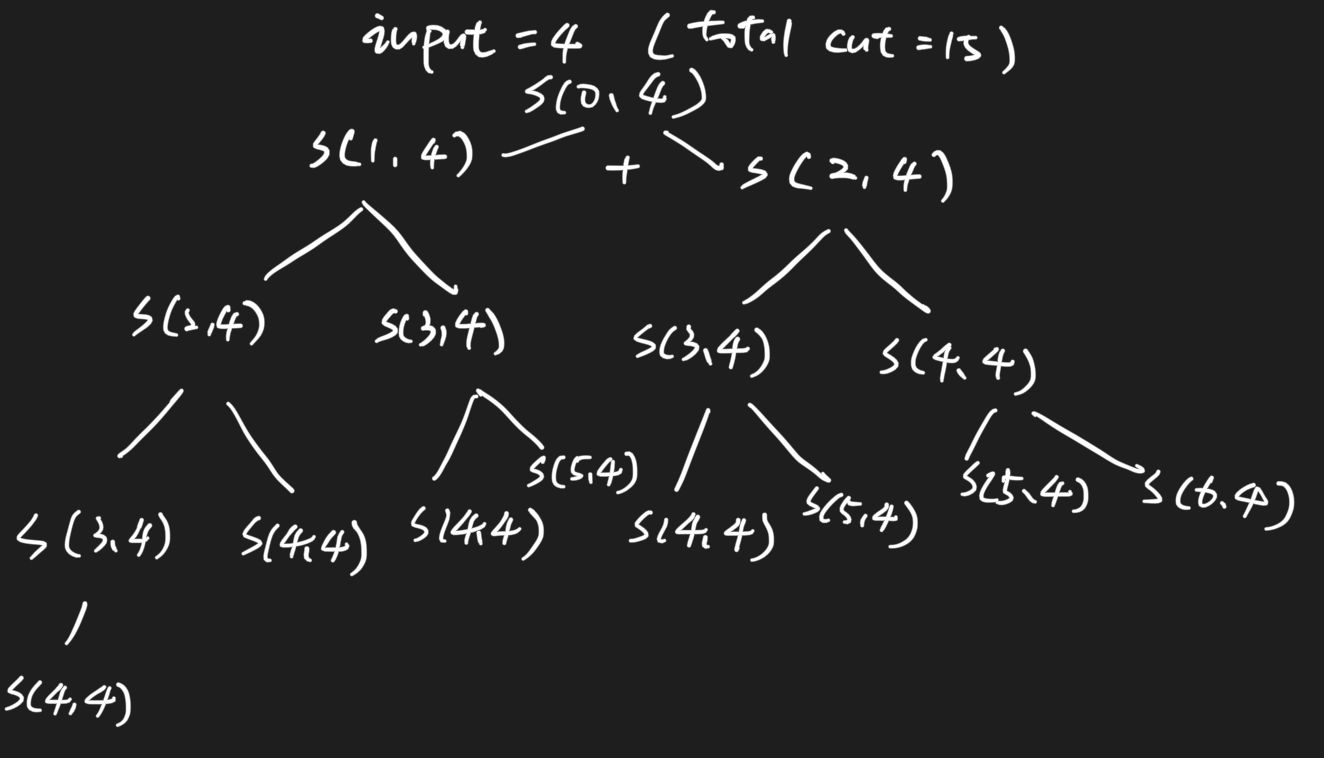 input = 4 (total cut = 15)
S(0, 4)
S(1, 4) + S(2, 4)
S(2,4) S(3,4) S(3,4) S(4, 4)
S(3,4) S(4,4) S(4,4) S(5,4) S(4,4) S(5,4) S(5,4) S(6,4)
S(4,4)